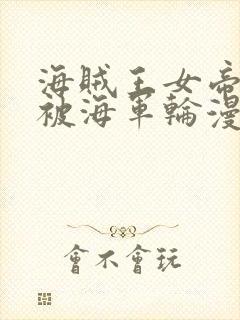 海賊王女帝
被海軍輪漫
會不會玩